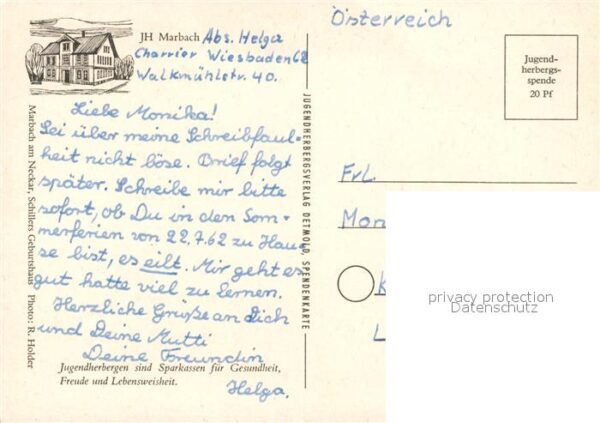 JH Marbach Abs. Helga
Charrier Wiesbaden 62
Walkmühlstr. 40.
Liebe Monika!
Sei über meine Schreibfaul-
heit nicht böse. Brief folgt
später. Schreibe mir bitte
sofort, ob Du in den Som-
merferien von 22.7.62 zu Hau-
se bist, es eilt. Mir geht es
gut hatte viel zu lernen.
Herzliche Grüße an Dich
und Deine Mutti
Deine Freundin
Helga.
Jugendherbergen sind Sparkassen für Gesundheit,
Freude und Lebensweisheit.
Marbach am Neckar, Schillers Geburtshaus · Photo: R. Holder
JUGENDHERBERGSVERLAG DETMOLD, SPENDENKARTE
Österreich
Jugend-
herbergs-
spende
20 Pf
Frl.
Mon
L
privacy protection
Datenschutz